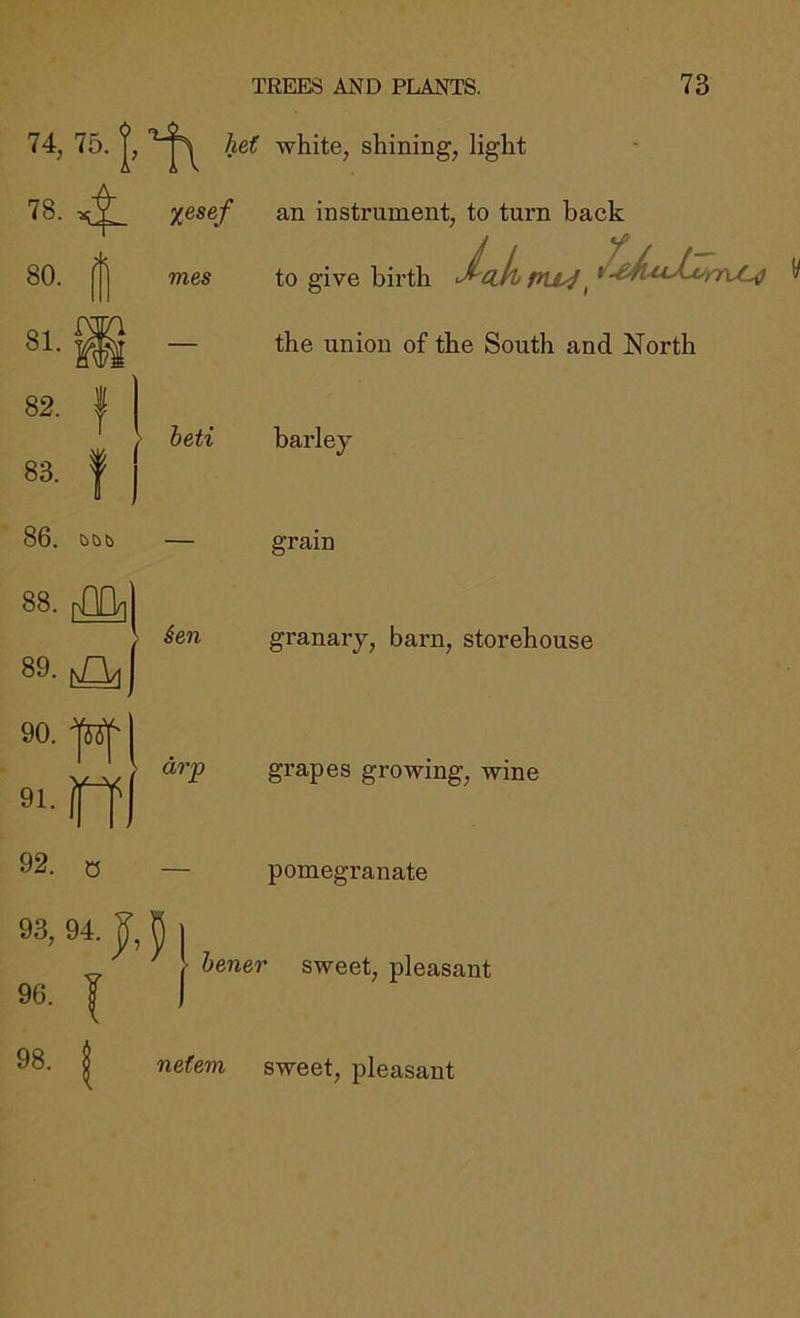 TREES AND PLANTS. 73
74, 75. ḥeť white, shining, light
78. χesef an instrument, to turn back
80. mes to give birth
81. — the union of the South and North
82.
beti barley
83.
86. — grain
88.
śen granary, barn, storehouse
89.
90.
árp grapes growing, wine
91.
92. — pomegranate
93, 94.
bener sweet, pleasant
96.
98. neťem sweet, pleasant